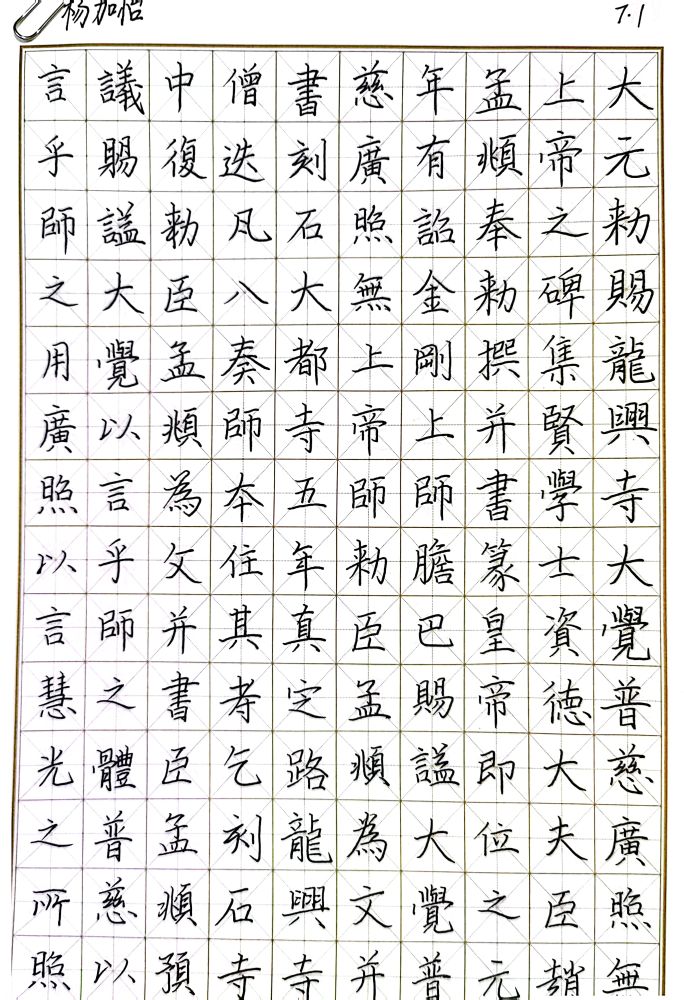 杨加怡
7.1
大元勑賜龍興寺大覺普慈廣照無
上帝之碑集賢學士資德大夫臣趙
孟頫奉勑撰并書篆皇帝即位之元
年有詔金剛上師膽巴賜謚大覺普
慈廣照無上帝師勑臣孟頫為文并
書刻石大都寺五年真定路龍興寺
僧迭凡八奏師本住其寺乞刻石寺
中復勑臣孟頫為文并書臣孟頫預
議賜謚大覺以言乎師之體普慈以
言乎師之用廣照以言慧光之所照